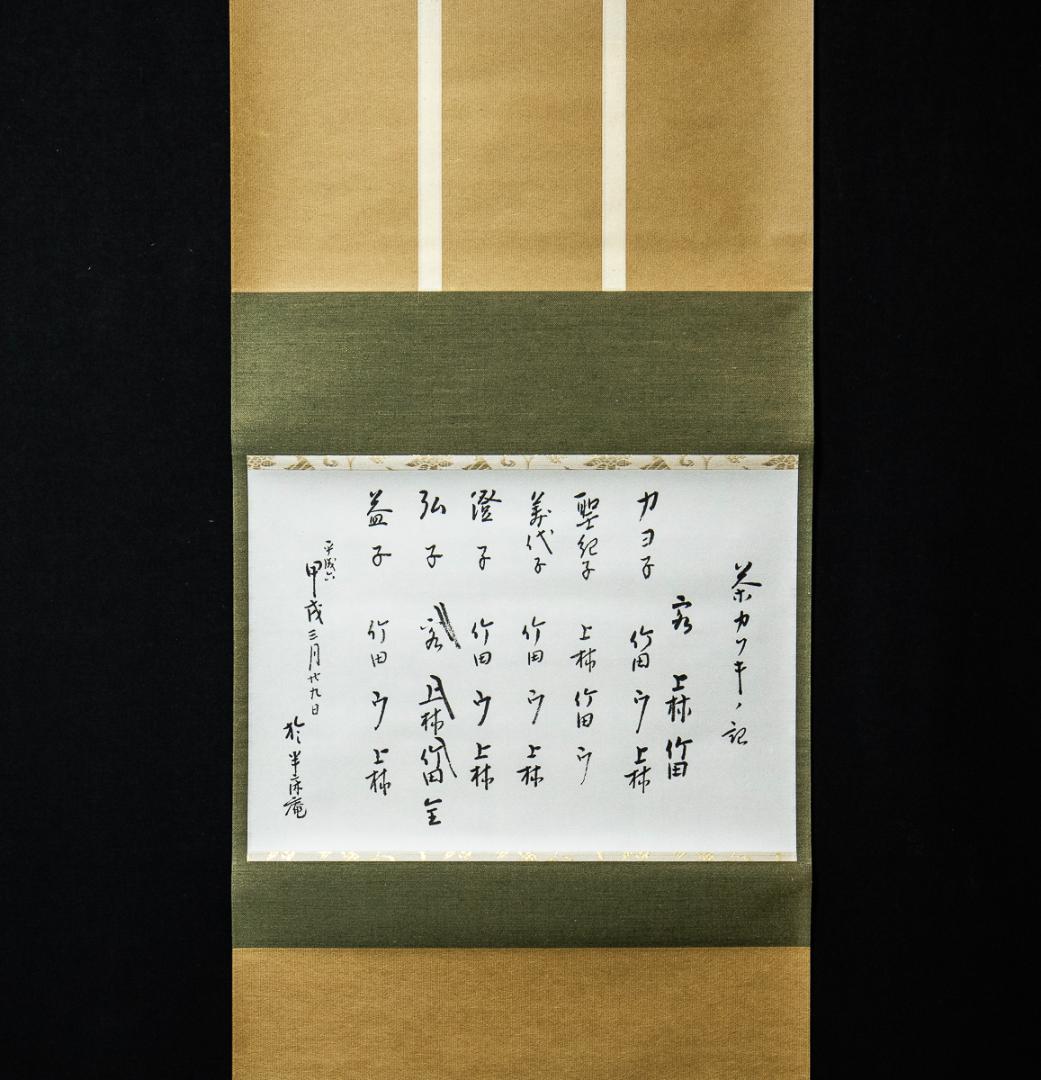 茶カフキノ記
客　上林　竹田
カヨ子　竹田　ウ　上林
聖紀子　上林　竹田　ウ
美代子　竹田　ウ　上林
澄子　竹田　ウ　上林
弘子　客　上林　竹田　全
益子　竹田　ウ　上林
平成六
甲戌三月廿九日
於半床庵